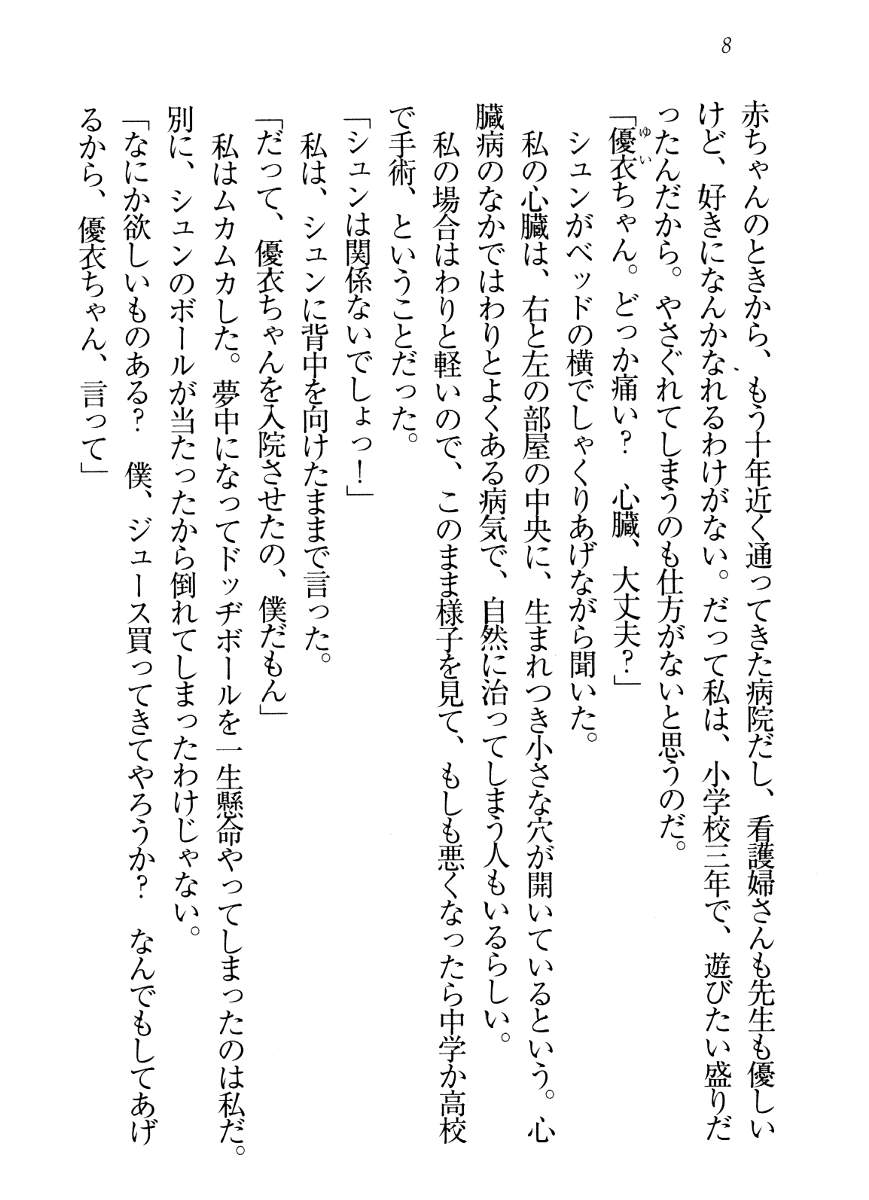 8
赤ちゃんのときから、もう十年近く通ってきた病院だし、看護婦さんも先生も優しい
けど、好きになんかなれるわけがない。だって私は、小学校三年で、遊びたい盛りだ
ったんだから。やさぐれてしまうのも仕方がないと思うのだ。
「優衣ちゃん。どっか痛い？　心臓、大丈夫？」
ゆい
シュンがベッドの横でしゃくりあげながら聞いた。
私の心臓は、右と左の部屋の中央に、生まれつき小さな穴が開いているという。心
臓病のなかではわりとよくある病気で、自然に治ってしまう人もいるらしい。
私の場合はわりと軽いので、このまま様子を見て、もしも悪くなったら中学か高校
で手術、ということだった。
「シュンは関係ないでしょっ！」
私は、シュンに背中を向けたままで言った。
「だって、優衣ちゃんを入院させたの、僕だもん」
私はムカムカした。夢中になってドッヂボールを一生懸命やってしまったのは私だ。
別に、シュンのボールが当たったから倒れてしまったわけじゃない。
「なにか欲しいものある？　僕、ジュース買ってきてやろうか？　なんでもしてあげ
るから、優衣ちゃん、言って」